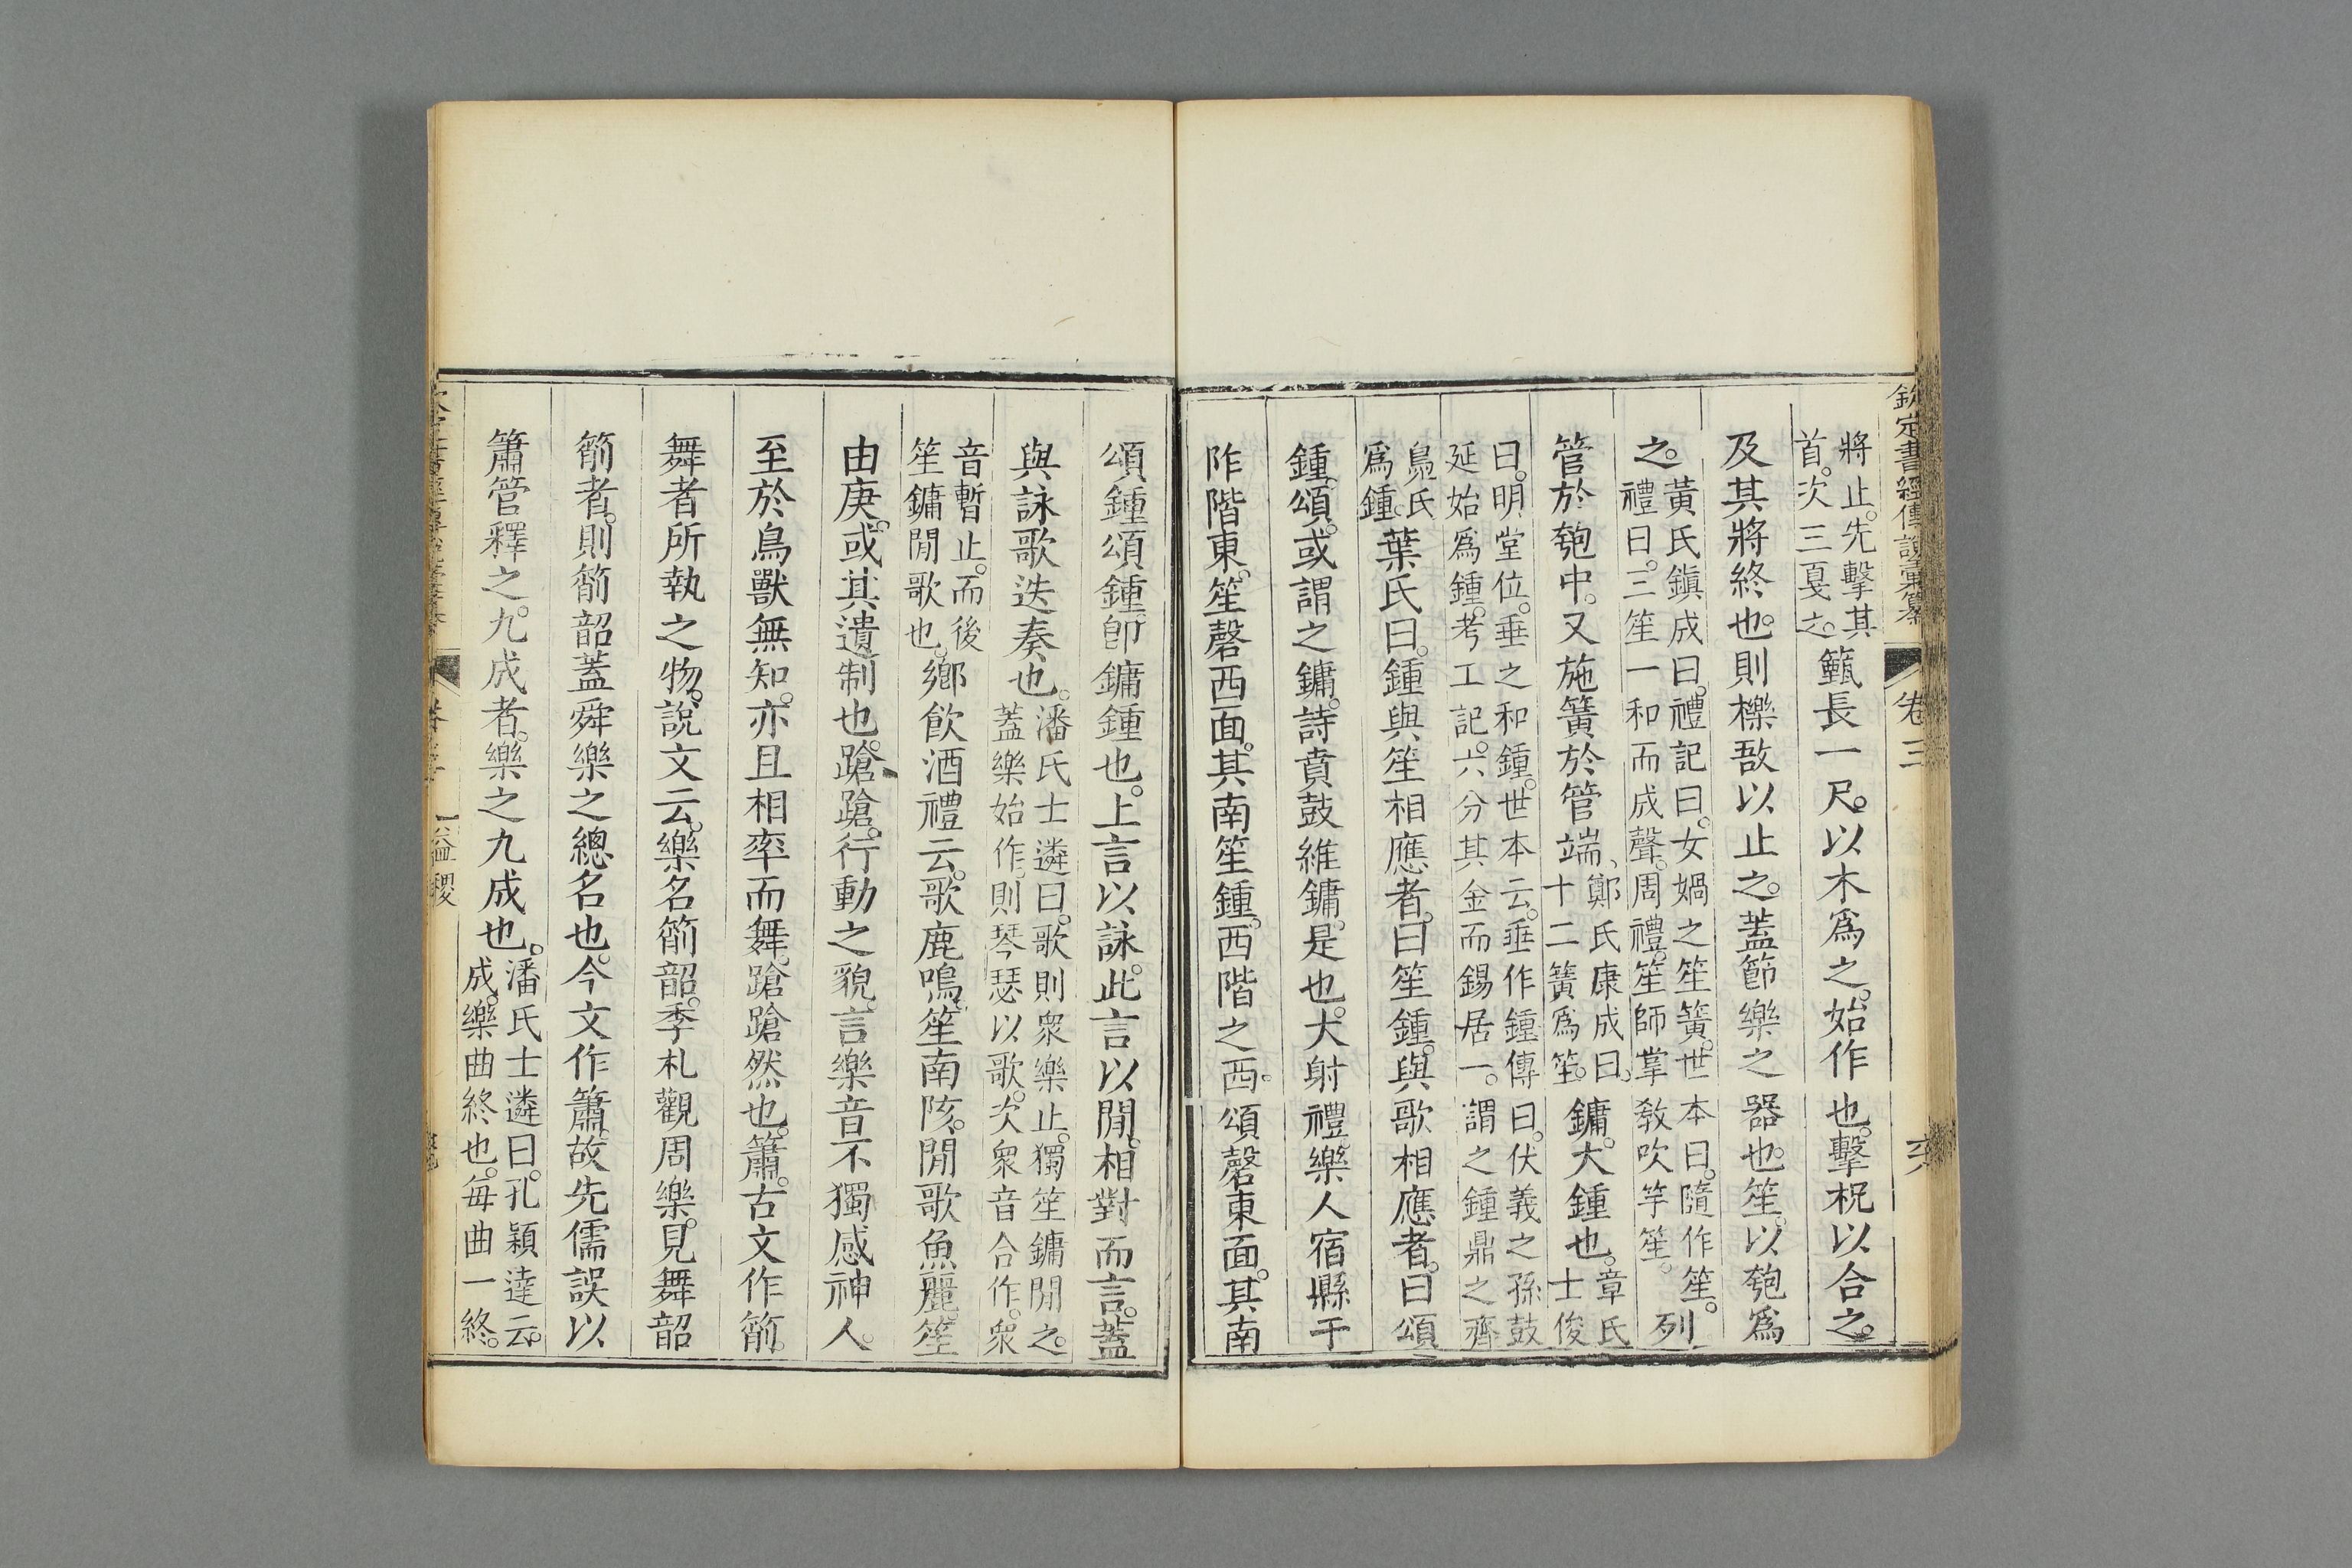 欽定書經傳說彙纂 卷三
將止。先擊其
首。次三戛之。
籈長一尺。以木爲之。始作也。擊柷以合之。
及其將終也。則櫟敔以止之。蓋節樂之器也。笙。以匏爲
之。
黃氏鎭成曰。禮記曰。女媧之笙簧。世本曰。隨作笙。
禮曰。三笙一和而成聲。周禮。笙師掌敎吹竽笙。
列
管於匏中。又施簧於管端、
鄭氏康成曰。
十二簧爲笙。
鏞。大鍾也。
章氏
士俊
曰。明堂位。垂之和鍾。世本云。垂作鍾傳曰。伏義之孫鼓
延始爲鍾。考工記。六分其金而錫居一。謂之鍾鼎之齊
鳧氏
爲鍾。
葉氏曰。鍾與笙相應者。曰笙鍾。與歌相應者。曰頌
鍾。頌。或謂之鏞。詩賁鼓維鏞。是也。大射禮。樂人宿縣于
阼階東。笙磬西面。其南笙鍾。西階之西。頌磬東面。其南
頌鍾頌鍾卽鏞鍾也。上言以詠。此言以閒。相對而言。蓋
與詠歌迭奏也。
潘氏士遴曰。歌則衆樂止。獨笙鏞閒之。
蓋樂始作。則琴瑟以歌。次衆音合作。衆
音暫止。而後
笙鏞閒歌也。
鄉飮酒禮云。歌鹿鳴。笙南陔。閒歌魚麗。笙
由庚。或其遺制也。蹌蹌。行動之貌。言樂音不獨感神人。
至於鳥獸無知。亦且相率而舞。蹌蹌然也。簫。古文作箾。
舞者所執之物。說文云。樂名箾韶。季札觀周樂。見舞韶
箾者。則箾韶蓋舜樂之總名也。今文作簫。故先儒誤以
簫管釋之。九成者。樂之九成也。
潘氏士遴曰。孔穎達云。
成。樂曲終也。每曲一終。
益稷